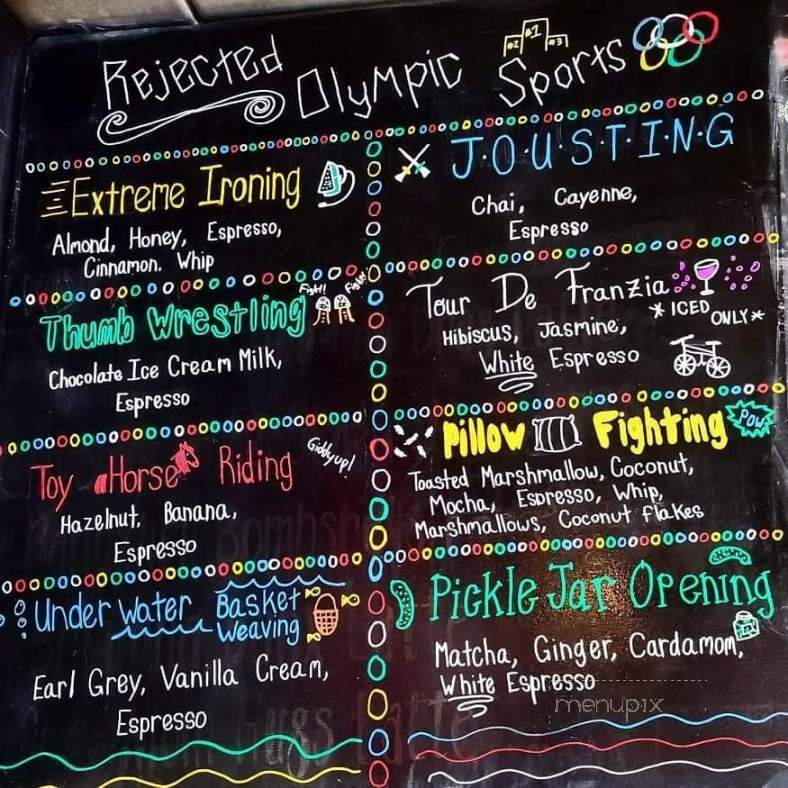 Rejected Olympic Sports
#2 #1 #3
Extreme Ironing
Almond, Honey, Espresso,
Cinnamon. Whip
Thumb Wrestling
Fight! Fight!
Chocolate Ice Cream Milk,
Espresso
Toy Horse Riding
Giddyup!
Hazelnut, Banana,
Espresso
Under water Basket
Weaving
Earl Grey, Vanilla Cream,
Espresso
J·O·U·S·T·I·N·G
Chai, Cayenne,
Espresso
Tour De Franzia
* ICED ONLY *
Hibiscus, Jasmine,
White Espresso
Pillow Fighting
Pow
Toasted Marshmallow, Coconut,
Mocha, Espresso, Whip,
Marshmallows, Coconut flakes
Pickle Jar Opening
Matcha, Ginger, Cardamom,
White Espresso
menupix